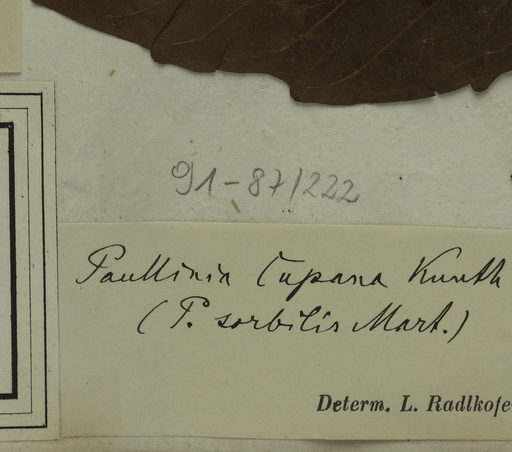 91-87/222
Paullinia Cupana Kunth
(P. sorbilis Mart.)
Determ. L. Radlkofe